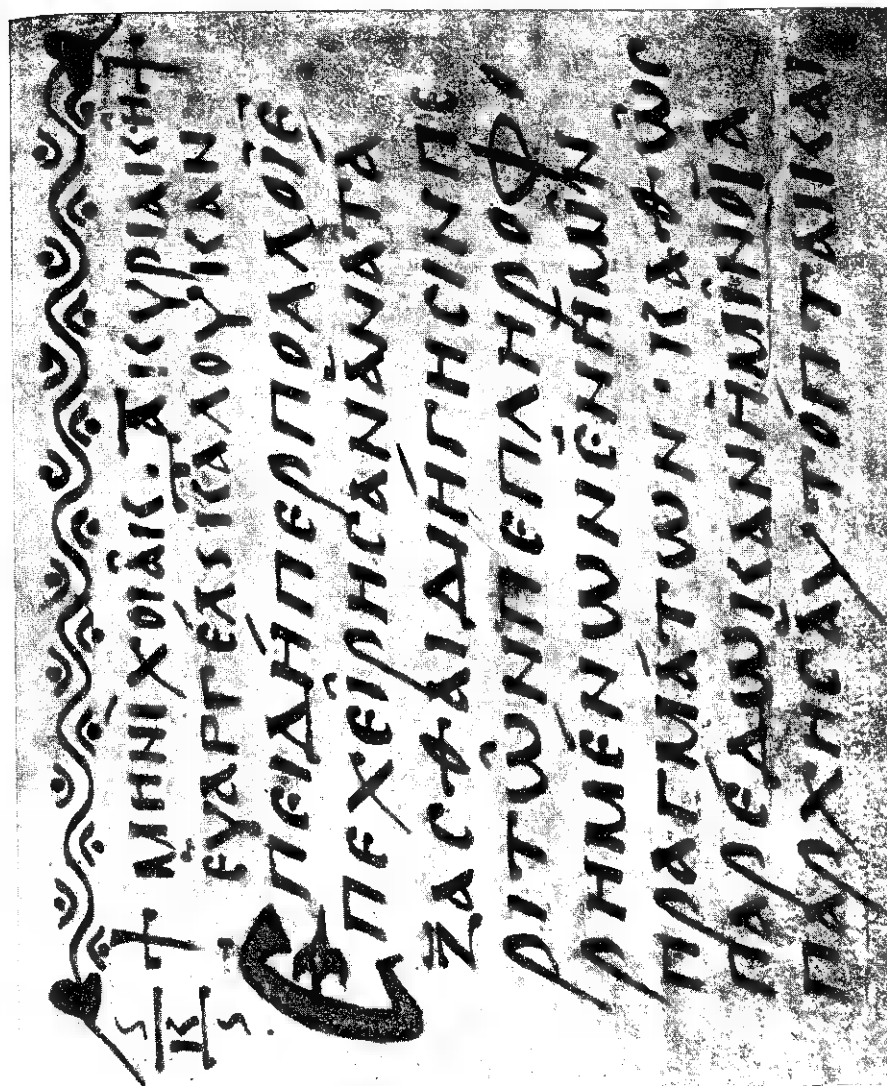 ϛ Κ ϛ + ΜΗΝΙΧΟΙΑΚ·Α ΚΥΡΙΑΚΗ+
ΕΥΑΡΓΕΛϛ ΚΑΛΟΥΚΑΝ
ΕΠΕΙΔΗΠΕΡΠΟΛΛΟΙΕ
ΠΕΧΕΙΡΗCΑΝΑΝΑΤΑ
ΖΑCΘΑΙΔΗΓΗCΙΝΠΕ
ΡΙΤΩΝΠΕΠΛΗΡΟΦ,
ΡΗΜΕΝΩΝΕΝΗΜΩΝ
ΠΡΑΓΜΑΤΩΝ·ΚΑΘΩC
ΠΑΡΕΔΩΚΑΝΗΜΙΝΟΙΑ
ΠΑΡΧΗCΑΥΤΟΠΤΑΙΚΑΙ